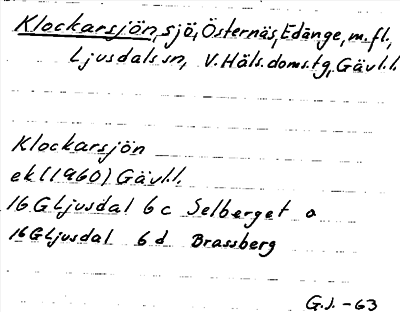 Klockarsjön, sjö, Östernäs, Edänge, m.fl.,
Ljusdals sn, V. Häls. doms.tg, Gävl.l.
Klockarsjön
ek (1960) Gävl.l.
16 G Ljusdal 6 c Selberget o
16 G Ljusdal 6 d Brassberg
G.J. -63